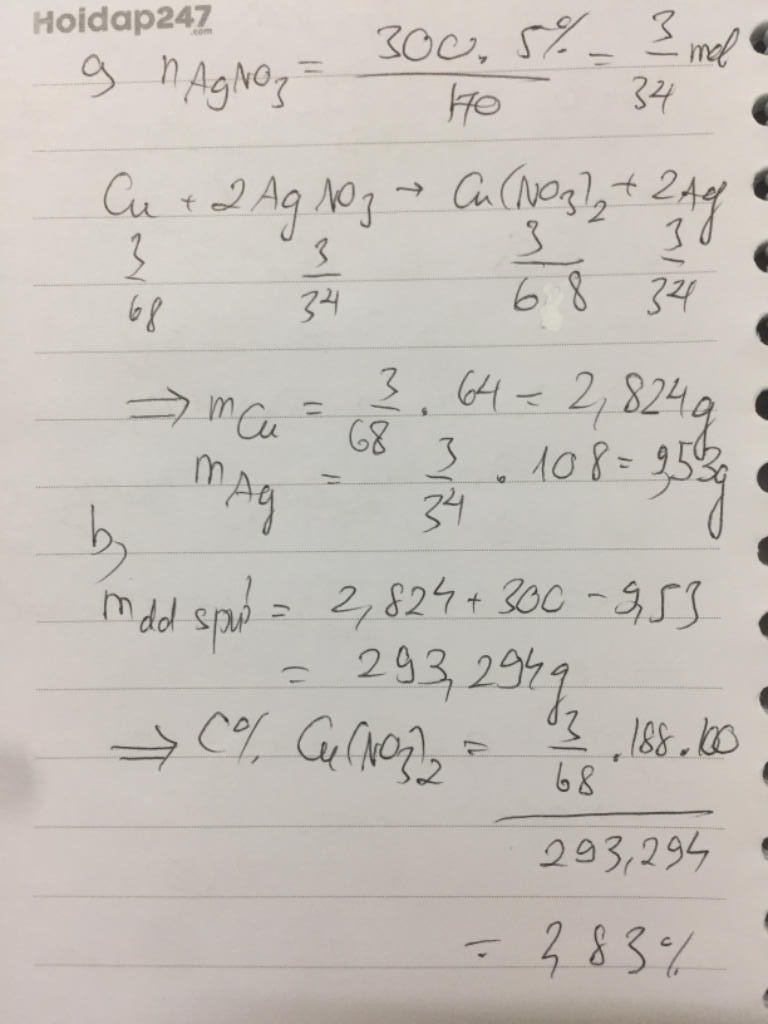 Hoidap247
.com
a, nAgNO3 = 300. 5% / 170 = 3/34 mol
Cu + 2AgNO3 → Cu(NO3)2 + 2Ag
3/68 3/34 3/68 3/34
⇒ mCu = 3/68 . 64 = 2,824g
mAg = 3/34 . 108 = 9,53g
b,
mdd spư = 2,824 + 300 - 9,53
= 293,294g
⇒ C% Cu(NO3)2 = 3/68 .188.100 / 293,294
= 2,83%